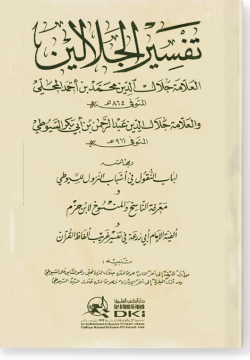 تفسير الجلالين
العلامة جلال الدين محمد بن أحمد المحلي
المتوفى ٨٦٤ هـ
والعلامة جلال الدين عبد الرحمن بن أبي بكر السيوطي
المتوفى ٩١١ هـ
وبهامشه
لباب النقول في أسباب النزول للسيوطي
و
معرفة الناسخ والمنسوخ لابن حزم
و
ألفية الإمام أبي زرعة في تفسير غريب ألفاظ القرآن
تنبيه :
دار الكتب العلمية
Dar Al-Kotob Al-ilmiyah
DKi